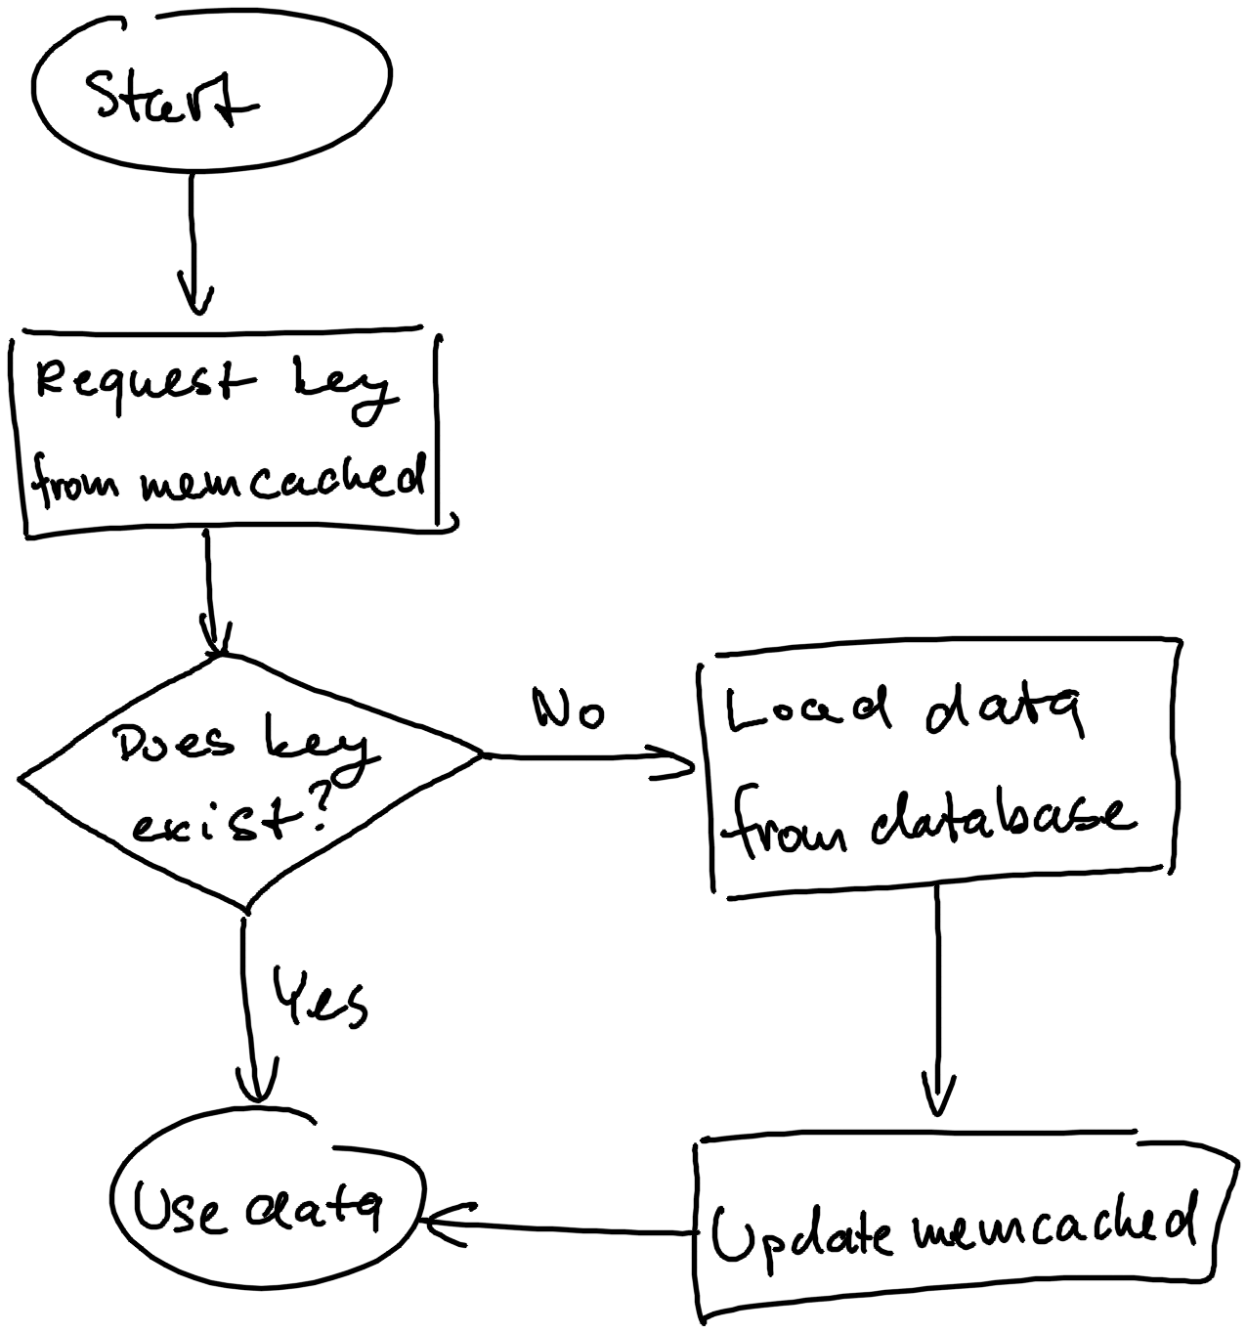 Start
Request key
from memcached
Does key
exist?
No
Load data
from database
Yes
Use data
Update memcached